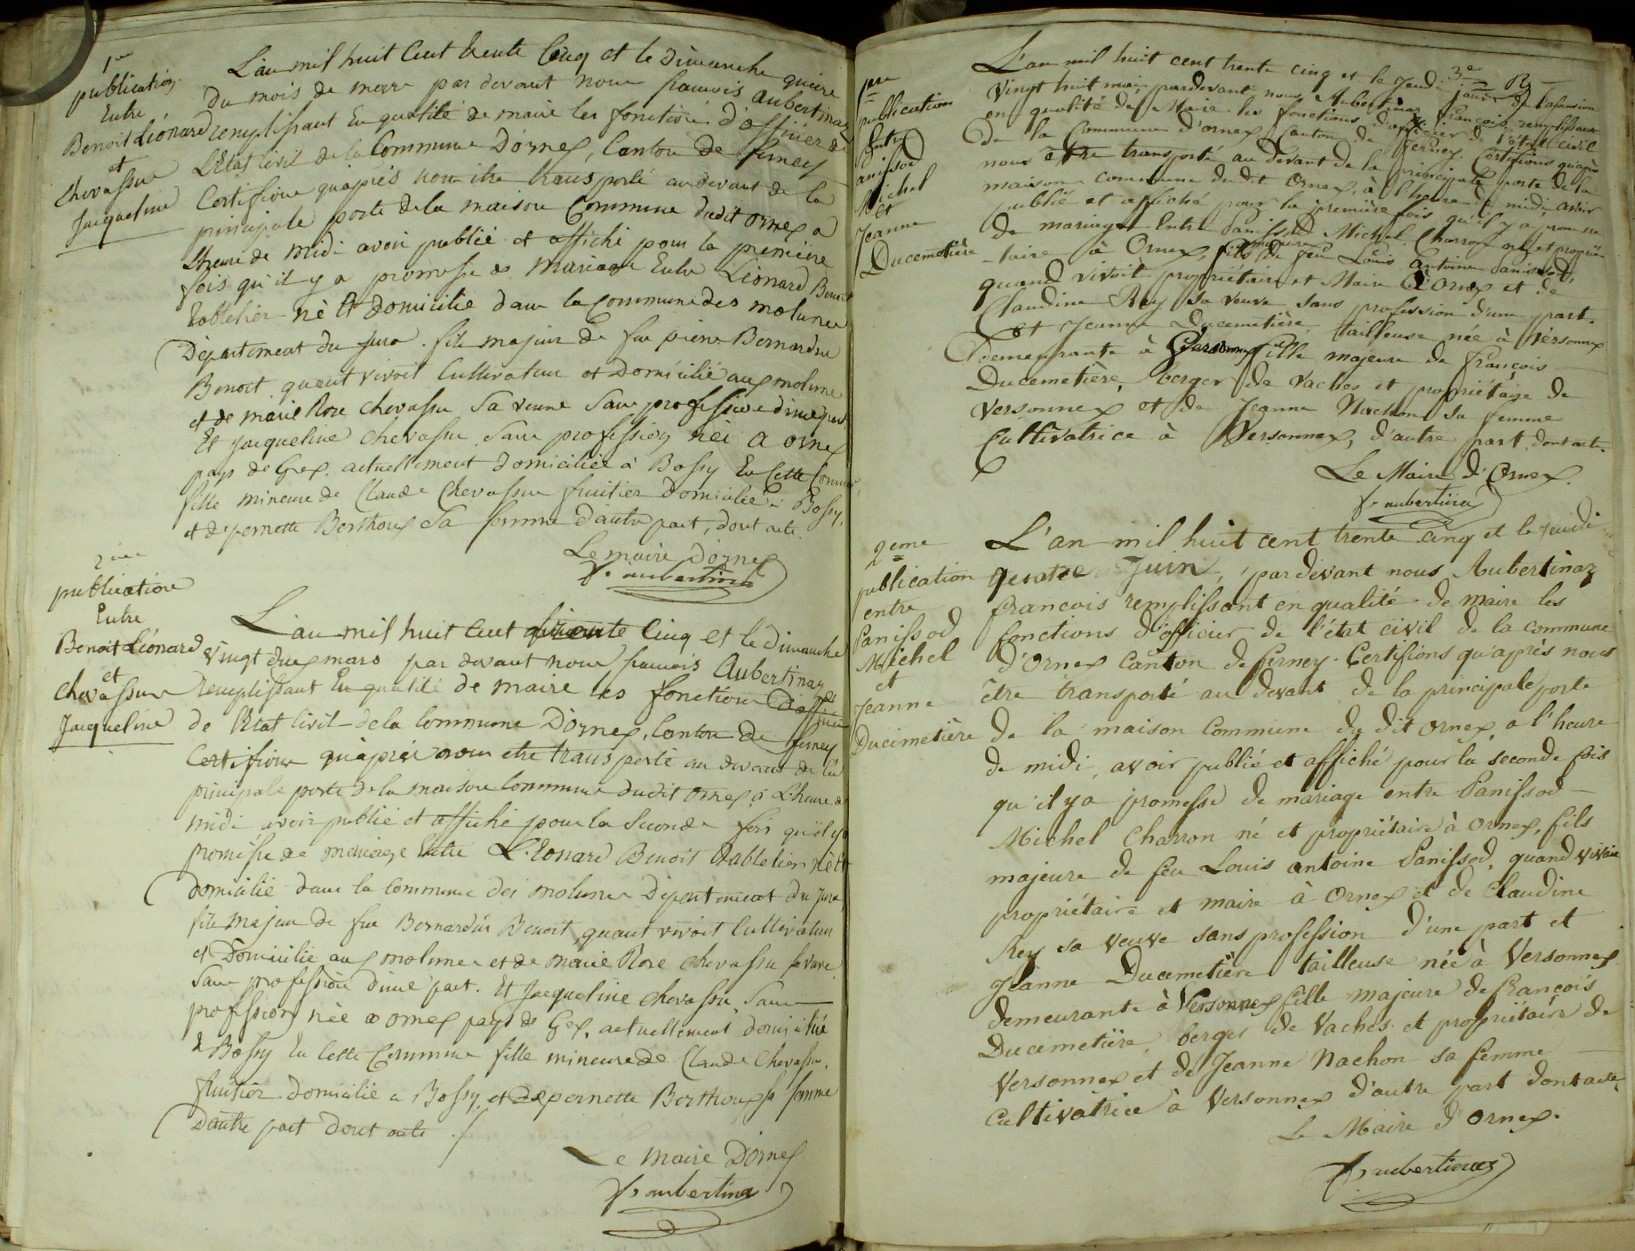 1re
publication
Entre
Benoit Léonard
et
Chevassu
Jacqueline
L'an mil huit Cent trente Cinq et le Dimanche quinze
Du mois de mars par devant nous francois Aubertinaz
remplissant En qualité de maire les fonctions d'officier de
L'Etat Civil de la Commune D'ornex, Canton De ferney
Certifions qu'après nous être transporté au devant de la
principale porte de la maison Commune dudit ornex a
L'heure de midi avoir publié et affiché pour la première
fois qu'il y a promesse de Mariage Entre Léonard Benoit
Tabletier né Et Domicilié dans la Commune des molunes
Département du Jura. fils majeur de feu pierre Bernardin
Benoit quant vivoit Cultivateur et Domicilié aux molunes
et de marie Rose Chevassu Sa veuve Sans profession d'une part
Et Jacqueline Chevassu Sans profession née a ornex
pays de Gex, actuellement Domiciliée à Bossy En Cette Commune
fille mineure de Claude Chevassu fruitier Domicilié à Bossy,
et de pernette Berthoux Sa femme d'autre part, dont acte.
Le maire D'ornex
fs aubertinaz
2ième
publication
Entre
Benoit Léonard
et
Chevassu
Jacqueline
L'an mil huit Cent trente Cinq et le Dimanche
vingt deux mars par devant nous francois Aubertinaz
remplissant En qualité de maire les fonctions D'officier
de l'Etat Civil de la Commune D'ornex, Canton De ferney
Certifions qu'après nous être transporté au devant de la
principale porte de la maison Commune dudit ornex à L'heure de
midi avoir publié et affiché pour la Seconde fois qu'il y a
promesse de mariage Entre Léonard Benoit Tabletier né Et
Domicilié dans la Commune des molunes Département du Jura,
fils majeur de feu Bernardin Benoit quant vivoit Cultivateur
et Domicilié aux molunes et de marie Rose Chevassu sa veuve
Sans profession d'une part. Et Jacqueline Chevassu Sans
profession née a ornex pays de Gex, actuellement domiciliée
à Bossy En Cette Commune fille mineure de Claude Chevassu,
fruitier domicilié a Bossy et de pernette Berthoux sa femme
D'autre part dont acte
Le Maire D'ornex
fs aubertinaz
1re
publication
Entre
Panissod
Michel
et
Jeanne
Ducemetière
L'an mil huit cent trente cinq et le Jeudi jour de l'assension
Vingt huit mai, pardevant nous Aubertinaz François remplissant
en qualité de Maire les fonctions d'officier de l'état civil
De la Commune d'ornex, Canton de ferney Certifions qu'après
nous être transporté au devant de la principale porte de la
maison commune du dit Ornex, à l'heure de midi, avoir
publié et affiché pour la première fois qu'il y a promesse
de mariage Entre Panissod Michel Charron né et proprié-
-taire à Ornex, fils de feu Louis Antoine Panissod,
quand vivoit propriétaire et Maire à Ornex et de
Claudine Rey sa veuve sans profession d'une part.
et Jeanne Ducemetière, tailleuse née à Versonnex
Demeurante à Versonnex fille majeure de François
Ducemetière, berger de vaches et propriétaire de
Versonnex et de Jeanne Nachon sa femme
Cultivatrice à Versonnex, d'autre part dont acte.
Le Maire d'Ornex.
fs aubertinaz
2eme
publication
entre
Panissod
Michel
et
Jeanne
Ducimetière
L'an mil huit cent trente cinq et le jeudi
quatre Juin, pardevant nous Aubertinaz
francois remplissant en qualité de maire les
fonctions d'officier de l'état civil de la commune
d'Ornex Canton de ferney. Certifions qu'après nous
être transporté au devant de la principale porte
de la maison Commune du dit ornex, a l'heure
de midi, avoir publié et affiché pour la seconde fois
qu'il y a promesse de mariage entre Panissod
Michel Charron né et propriétaire à ornex, fils
majeure de feu Louis antoine Panissod, quand vivait
propriétaire et maire à Ornex et de Claudine
Rey sa veuve sans profession d'une part et
Jeanne Ducemetière tailleuse née à Versonnex
demeurante à Versonnex fille majeure de francois
Ducemetière, berger de vaches et propriétaire de
Versonnex et de Jeanne Nachon sa femme
Cultivatrice à Versonnex d'autre part dont acte.
Le Maire d'Ornex.
fs aubertinaz